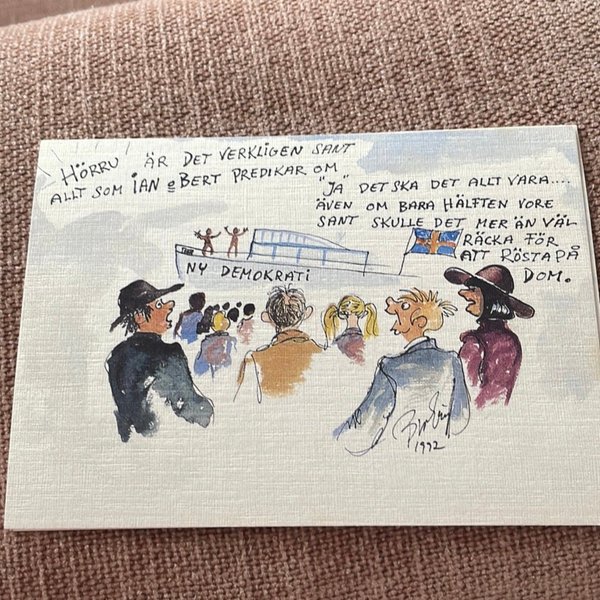 HÖRRU ÄR DET VERKLIGEN SANT
ALLT SOM IAN eBERT PREDIKAR OM
"JA" DET SKA DET ALLT VARA....
ÄVEN OM BARA HÄLFTEN VORE
SANT SKULLE DET MER ÄN VÄL
RÄCKA FÖR
ATT RÖSTA PÅ
DOM.
NY DEMOKRATi
1992